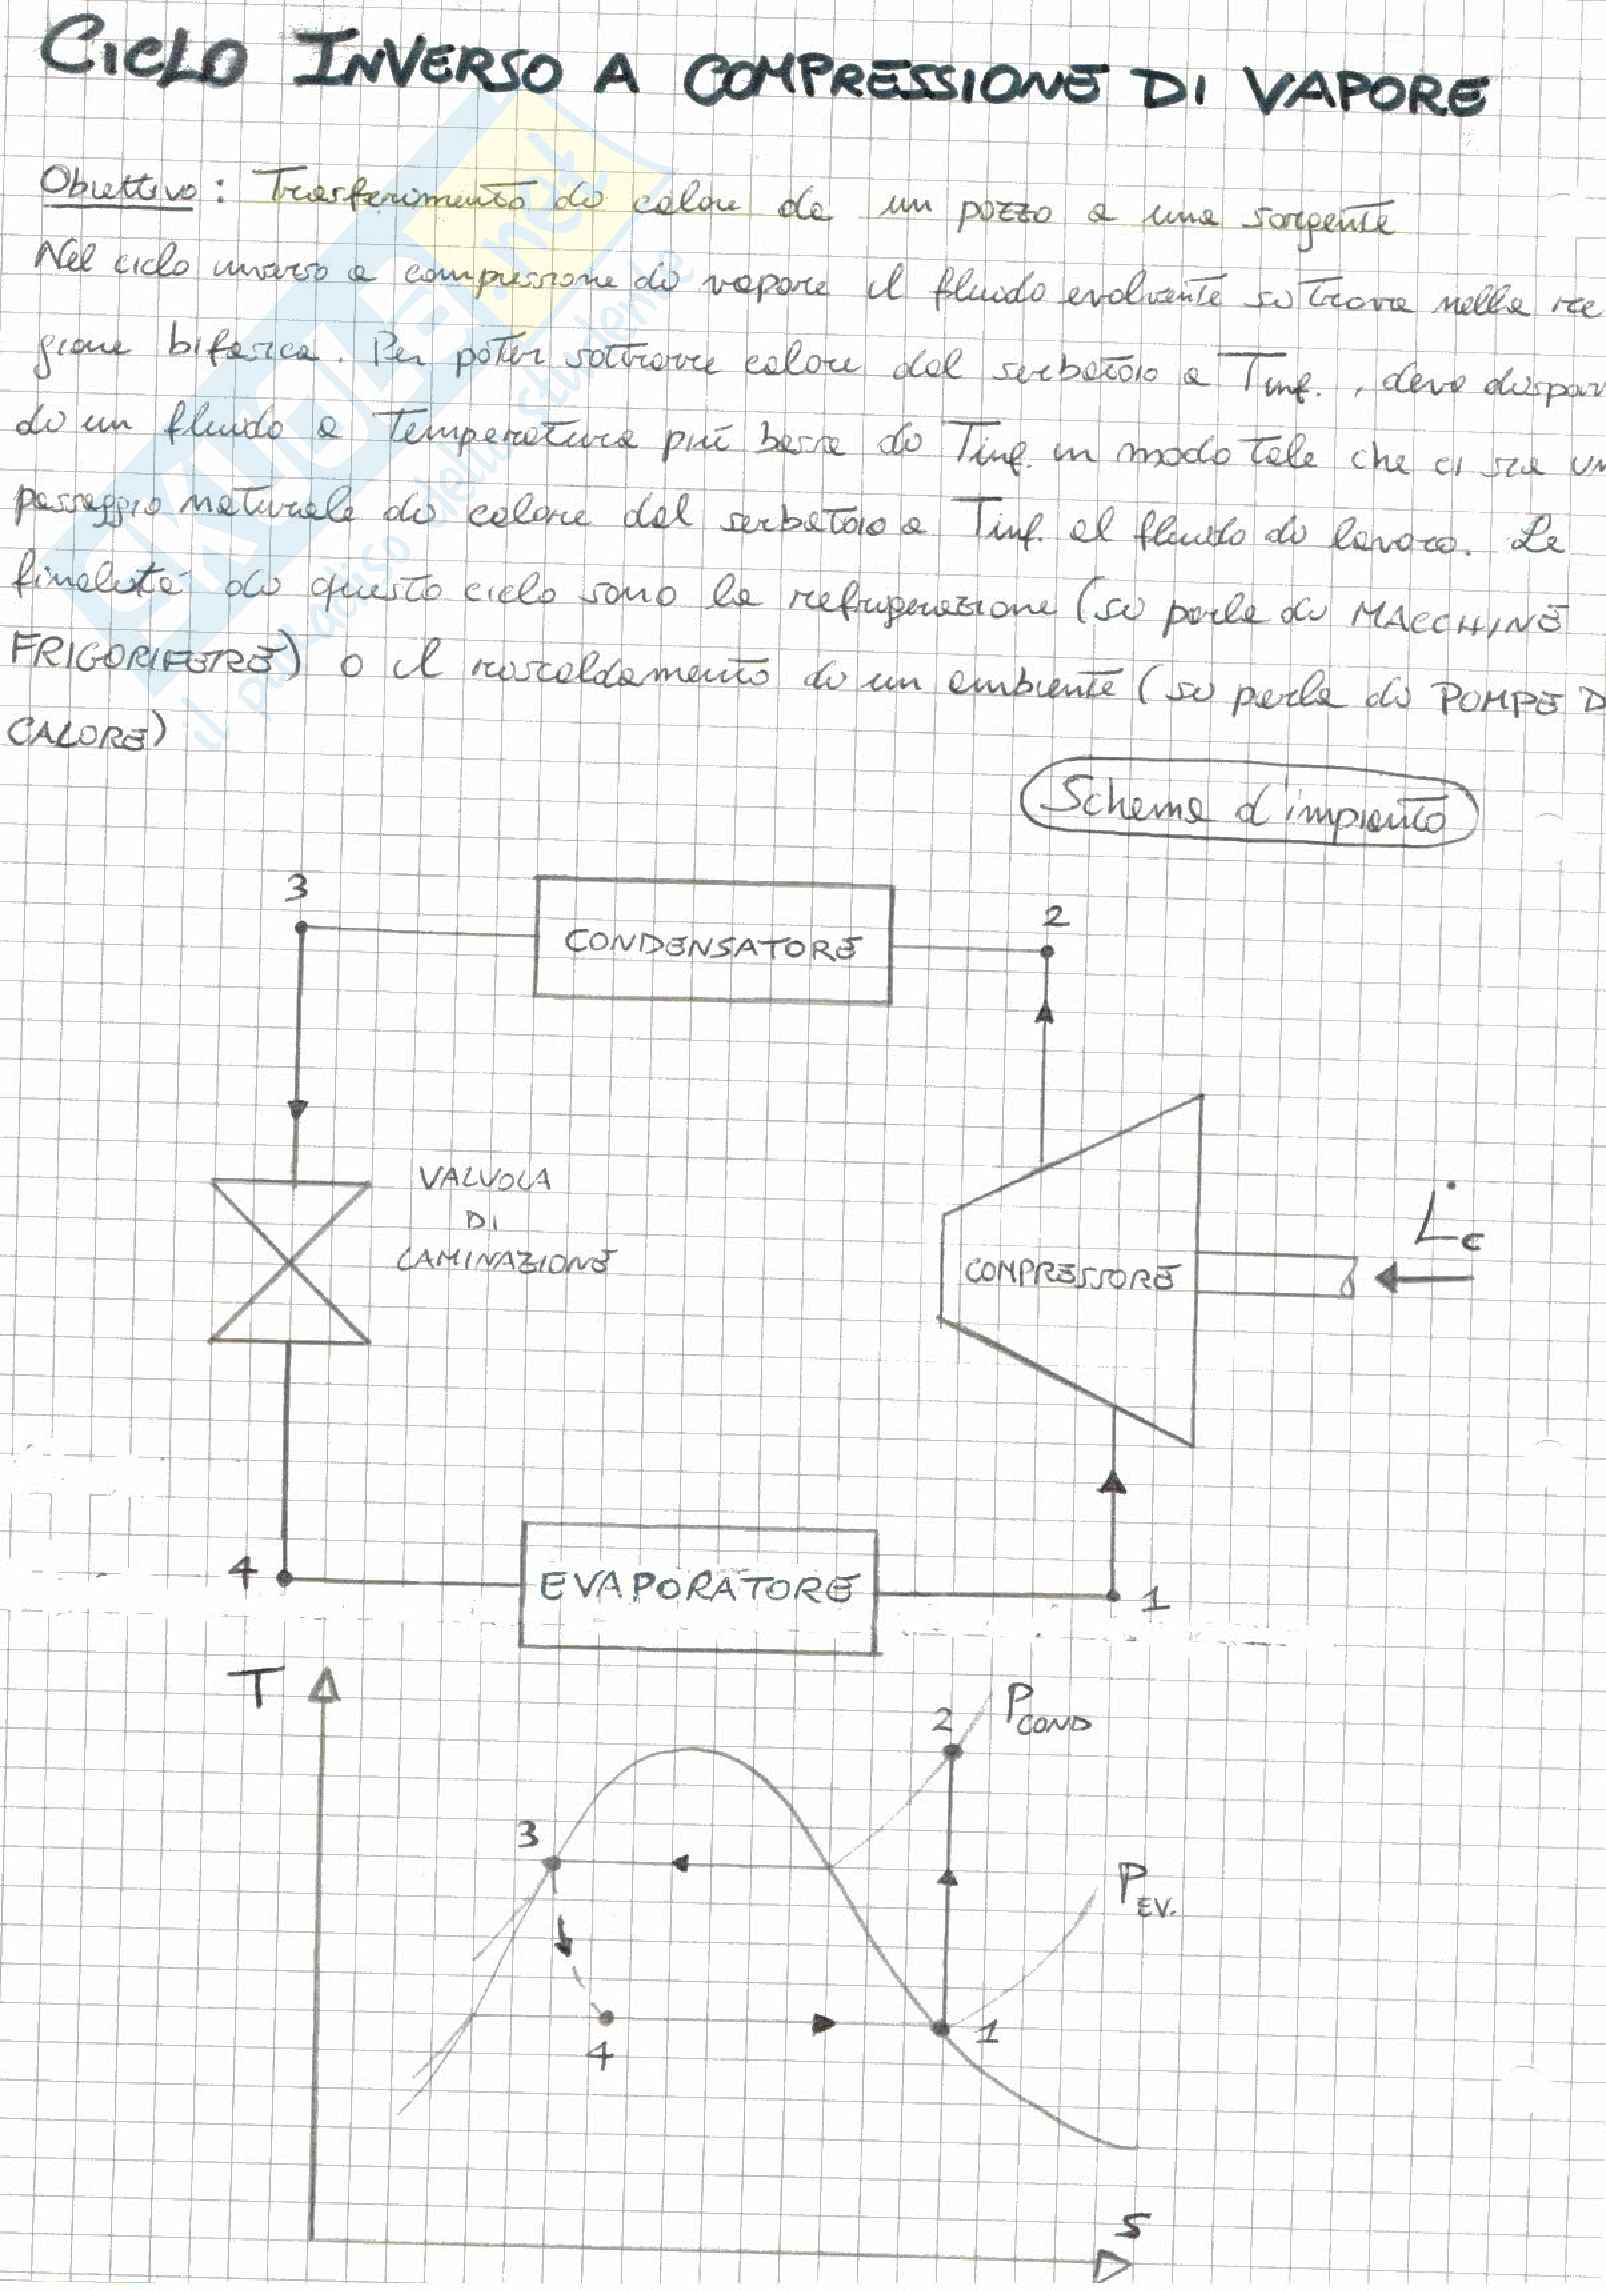 CICLO INVERSO A COMPRESSIONE DI VAPORE
Obiettivo: Trasferimento di calore da un pozzo a una sorgente
Nel ciclo inverso a compressione di vapore il fluido evolvente si trova nella re
gione bifasica. Per poter sottrarre calore dal serbatoio a Tinf. , devo dispor
di un fluido a temperatura più bassa di Tinf. in modo tale che ci sia un
passaggio naturale di calore dal serbatoio a Tinf. al fluido di lavoro. Le
finalità di questo ciclo sono la refrigerazione (si parla di MACCHINE
FRIGORIFERE) o il riscaldamento di un ambiente (si parla di POMPE D
CALORE)
Skuola.net
il paradiso dello studente
Schema d'impianto
3
CONDENSATORE
2
VALVOLA
DI
LAMINAZIONE
COMPRESSORE
L̇c
4
EVAPORATORE
1
T
2
PCOND
3
PEV.
4
1
S